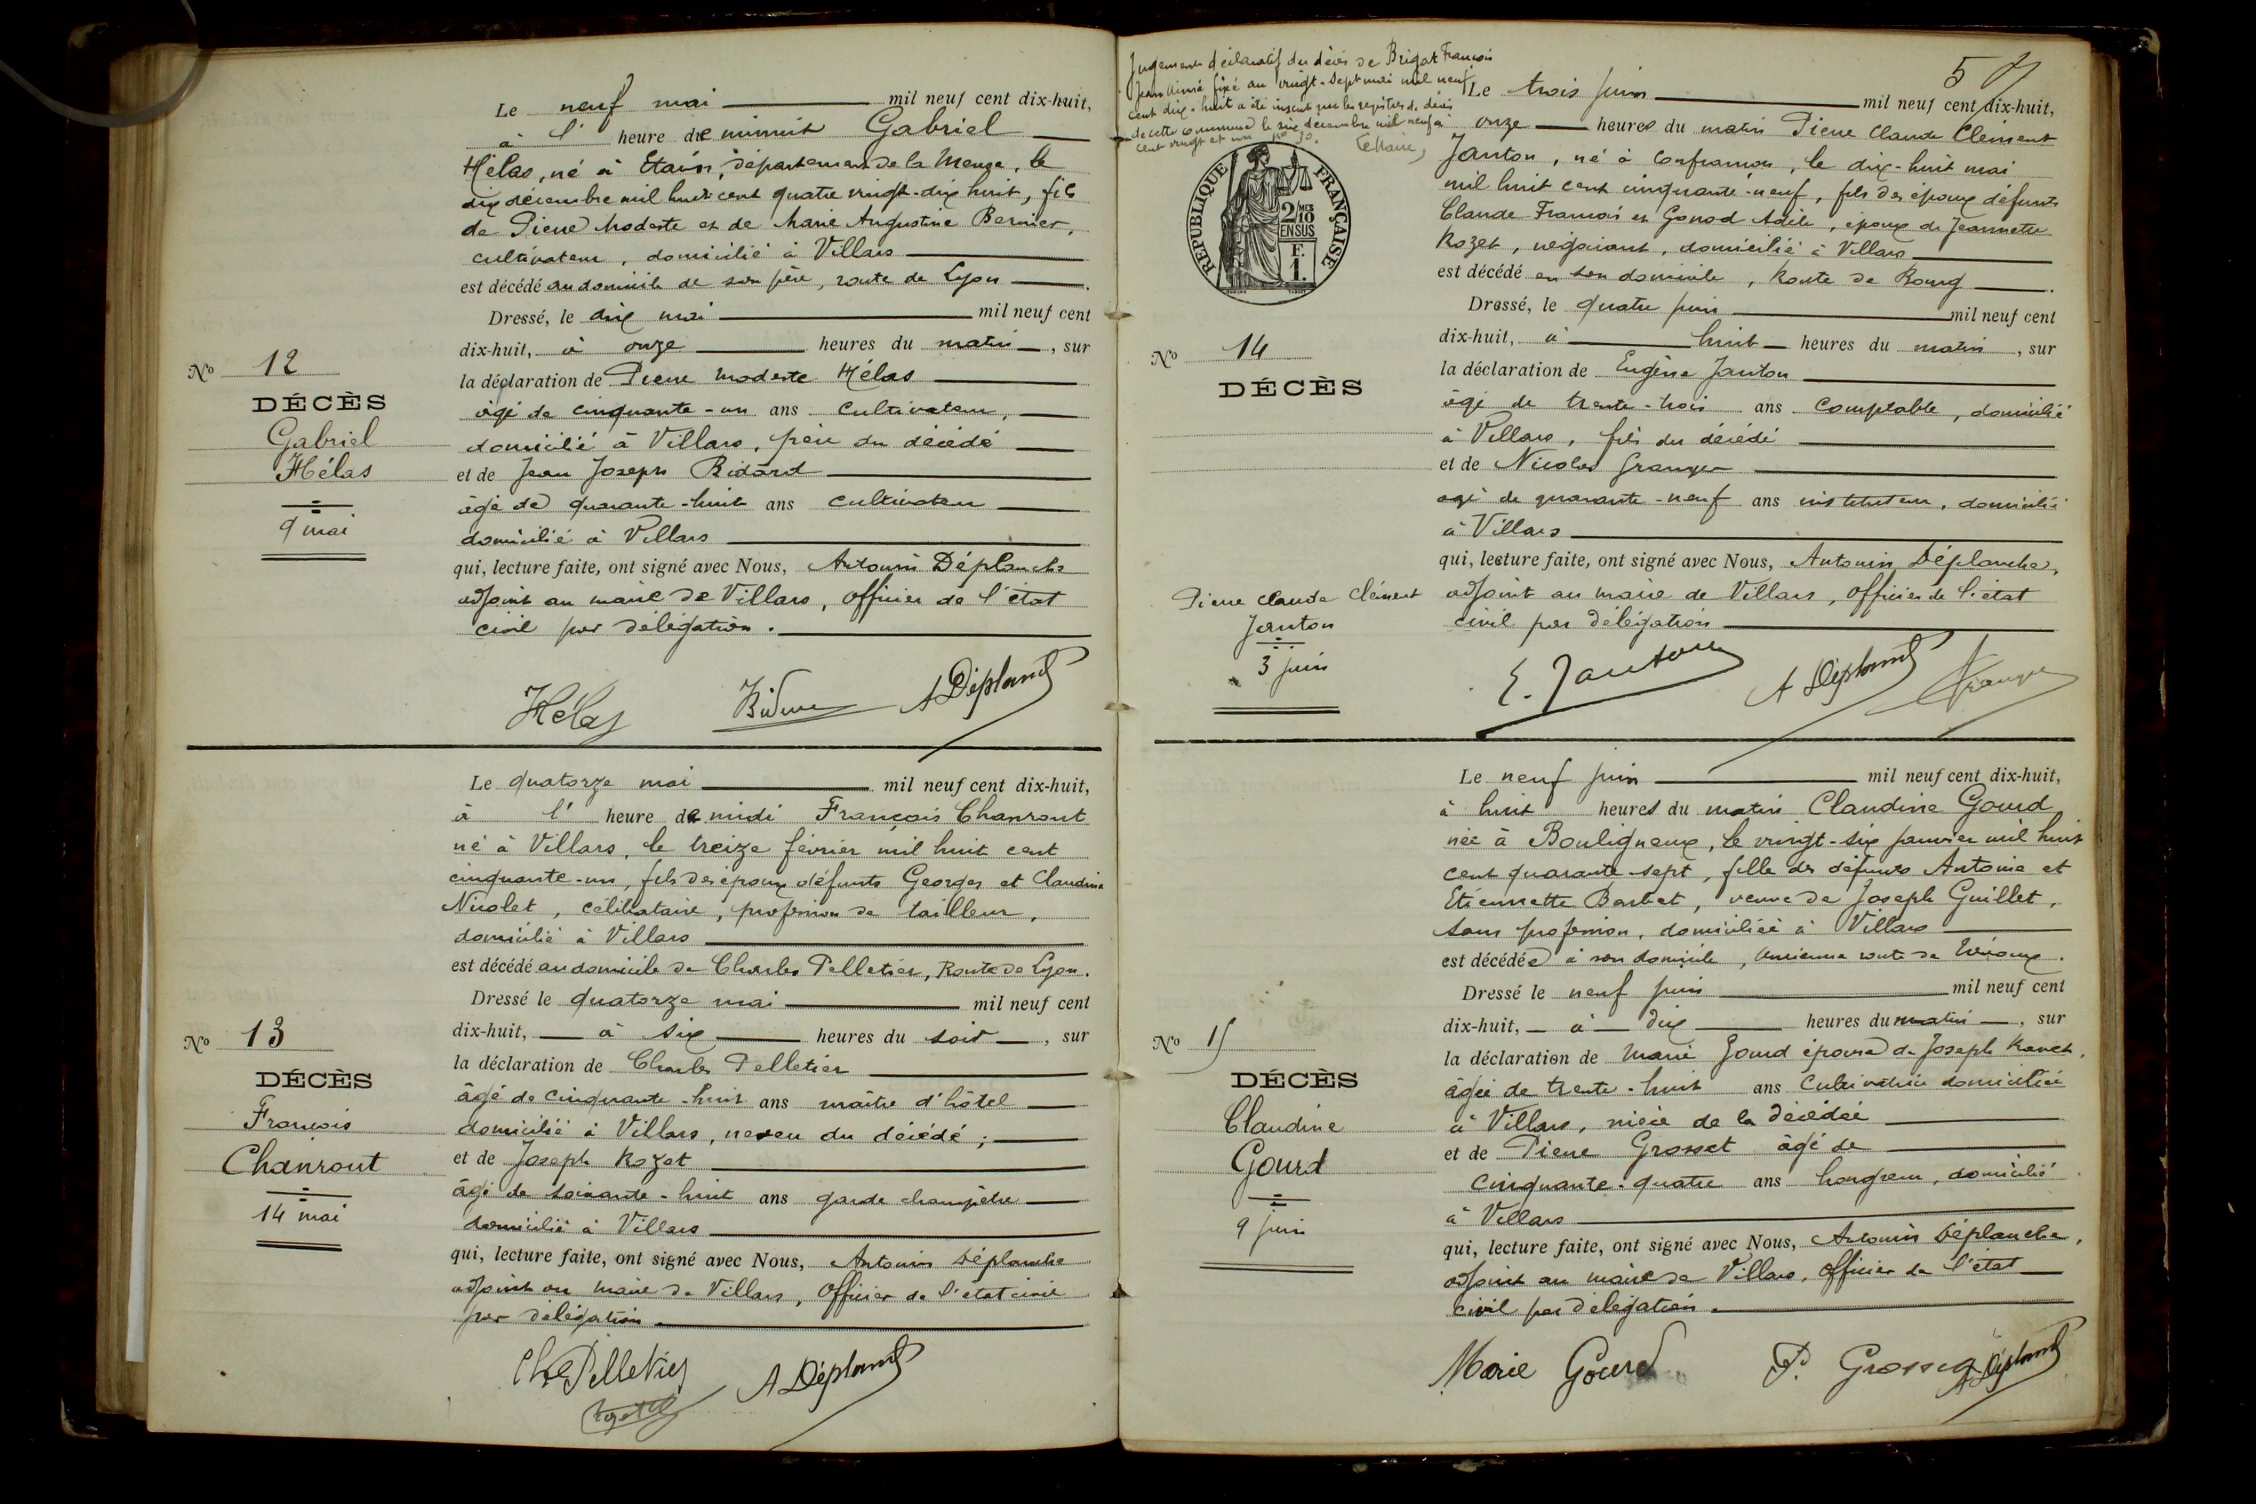 Le neuf mai mil neuf cent dix-huit,
à l' heure de minuit Gabriel
Hélas, né à Etain, département de la Meuse, le
dix décembre mil huit cent quatre vingt-dix huit, fils
de Pierre Modeste et de Marie Augustine Bernier,
cultivateur, domicilié à Villars
est décédé au domicile de son père, route de Lyon.
Dressé, le dix mai mil neuf cent
dix-huit, à onze heures du matin, sur
la déclaration de Pierre Modeste Hélas
âgé de cinquante-un ans cultivateur,
domicilié à Villars, père du décédé
et de Jean Joseph Bidard
âgé de quarante-huit ans cultivateur
domicilié à Villars
qui, lecture faite, ont signé avec Nous, Antonin Déplanche
adjoint au maire de Villars, officier de l'état
civil par délégation.
No 12
DÉCÈS
Gabriel
Hélas
9 mai
Hélas A Déplanch
Le quatorze mai mil neuf cent dix-huit,
à l' heure de midi François Chanront
né à Villars, le treize février mil huit cent
cinquante-un, fils des époux défunts Georges et Claudine
Nicolet, célibataire, profession de tailleur,
domicilié à Villars
est décédé au domicile de Charles Pelletier, Route de Lyon.
Dressé le quatorze mai mil neuf cent
dix-huit, à six heures du soir, sur
la déclaration de Charles Pelletier
âgé de cinquante-huit ans maître d'hôtel
domicilié à Villars, neveu du décédé;
et de Joseph Rozet
âgé de soixante-huit ans garde champêtre
domicilié à Villars
qui, lecture faite, ont signé avec Nous, Antonin Déplanche
adjoint au maire de Villars, officier de l'état civil
par délégation
No 13
DÉCÈS
François
Chanront
14 mai
Ch Pelletier A Déplanch
5
Jugement déclaratif du décès de Brigat François
Jean Aimé fixé au vingt-sept mai mil neuf
cent dix-huit a été inscrit sur les registres de décès
de cette commune le six décembre mil neuf
cent vingt et un no 30.
RÉPUBLIQUE FRANÇAISE
2/10 MES
EN SUS
F.
1.
Le trois juin mil neuf cent dix-huit,
onze heures du matin Pierre Claude Clément
Janton, né à Confrançon, le dix-huit mai
mil huit cent cinquante-neuf, fils des époux défunts
Claude François et Gonod Adèle, époux de Jeannette
Rozet, négociant, domicilié à Villars
est décédé en son domicile, Route de Bourg.
Dressé, le quatre juin mil neuf cent
dix-huit, à huit heures du matin, sur
la déclaration de Eugène Janton
âgé de trente-trois ans comptable, domicilié
à Villars, fils du décédé
et de Nicolas Granger
âgé de quarante-neuf ans instituteur, domicilié
à Villars
qui, lecture faite, ont signé avec Nous, Antonin Déplanche,
adjoint au maire de Villars, officier de l'état
civil par délégation
No 14
DÉCÈS
Pierre Claude Clément
Janton
3 juin
E. Janton A Déplanch Granger
Le neuf juin mil neuf cent dix-huit,
à huit heures du matin Claudine Gourd
née à Bouligneux, le vingt-six janvier mil huit
cent quarante-sept, fille des défunts Antoine et
Etiennette Barbet, veuve de Joseph Guillet,
sans profession, domiciliée à Villars
est décédée à son domicile, ancienne route de Trévoux.
Dressé le neuf juin mil neuf cent
dix-huit, à dix heures du matin, sur
la déclaration de Marie Gourd épouse de Joseph
âgée de trente-huit ans cultivatrice domiciliée
à Villars, nièce de la décédée
et de Pierre Grosset âgé de
cinquante-quatre ans hongreur, domicilié
à Villars
qui, lecture faite, ont signé avec Nous, Antonin Déplanche,
adjoint au maire de Villars, officier de l'état
civil par délégation.
No 15
DÉCÈS
Claudine
Gourd
9 juin
Marie Gourd P. Grosset A Déplanch